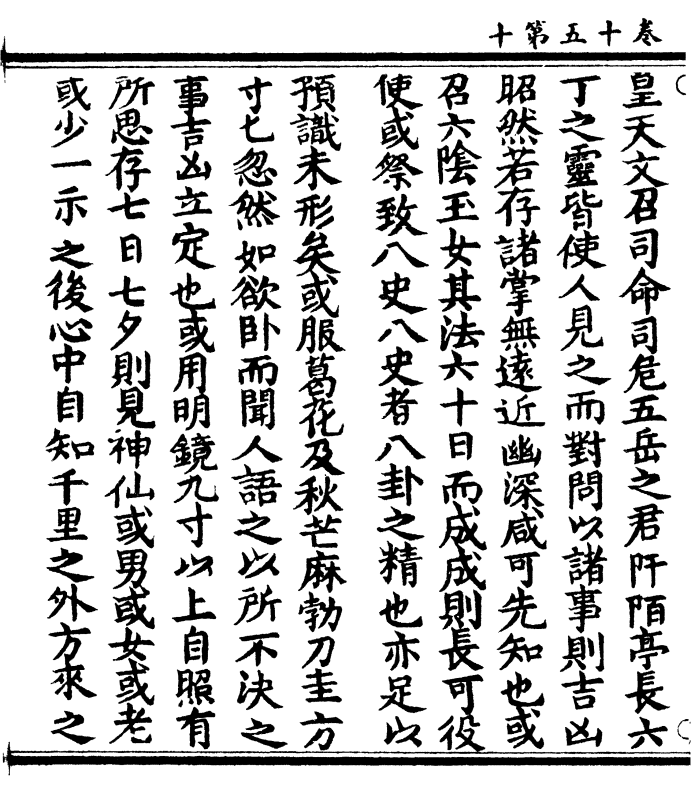 卷十五第十
皇天文召司命司危五岳之君阡陌亭長六
丁之靈皆使人見之而對問以諸事則吉凶
昭然若存諸掌無遠近幽深咸可先知也或
召六陰玉女其法六十日而成成則長可役
使或祭致八史八史者八卦之精也亦足以
預識未形矣或服葛花及秋芒麻勃刀圭方
寸匕忽然如欲卧而聞人語之以所不決之
事吉凶立定也或用明鏡九寸以上自照有
所思存七日七夕則見神仙或男或女或老
或少一示之後心中自知千里之外方來之